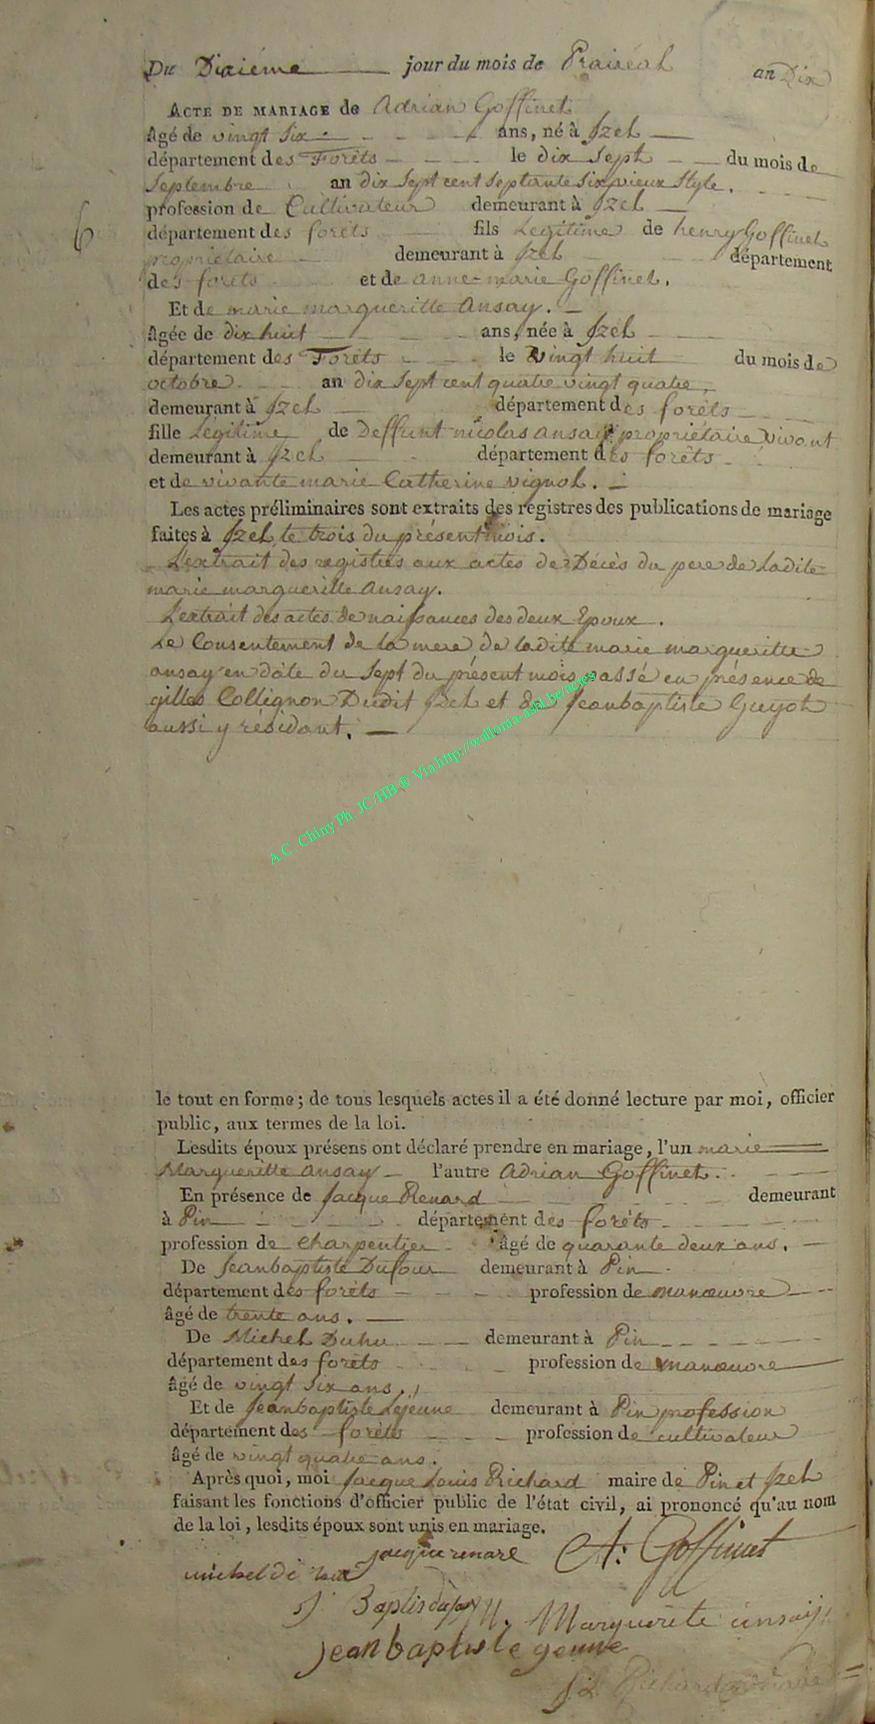 Du Dixiéme jour du mois de Prairéal an Dix
ACTE DE MARIAGE de Adrian Goffinet
âgé de vingt six ans, né à Jzel
département des Forêts le dix Sept du mois de
Septembre an dix Sept cent Septante Six vieux Style.
profession de Cultivateur demeurant à Jzel
6
département des forêts fils Legitime de henry Goffinet
propriétaire demeurant à Jzel département
des forêts et de anne-marie Goffinet.
Et de marie margueritte Ansay.
âgée de dix huit ans, née à Jzel
département des Forêts le vingt huit du mois de
octobre an dix Sept cent quatre vingt quatre,
demeurant à Jzel département des forêts
fille Legitime de Deffunt nicolas ansay propriétaire vivant
demeurant à Jzel département des forêts
et de vivante marie Catherine vignol.
Les actes préliminaires sont extraits des registres des publications de mariage
faites à Jzel le trois du présent mois.
L'extrait des registres aux actes de Décès du pere de Ladite
marie margueritte ansay.
L'extrait des actes de naissances des deux Epoux.
Le Consentement de la mere de ladite marie margueritte
ansay en date du Sept du présent mois passé en présence de
gilles Collignon Dudit Jzel et de Jeanbaptiste Guyot
aussi y résidant.
A.C. Chiny Ph. JC/HB & Via http://wallonia-asbl.be/actes
le tout en forme; de tous lesquels actes il a été donné lecture par moi, officier
public, aux termes de la loi.
Lesdits époux présens ont déclaré prendre en mariage, l'un marie
Margueritte ansay l'autre Adrian Goffinet.
En présence de Jacque Renard demeurant
à Pin département des forêts
profession de Charpentier âgé de quarante deux ans.
De Jeanbaptiste Dufour demeurant à Pin
département des forêts profession de manœuvre
âgé de trente ans.
De Michel Duhu demeurant à Pin
département des forêts profession de manœuvre
âgé de vingt Six ans.
Et de Jeanbaptiste Lejeune demeurant à Pin profession
département des forêts profession de cultivateur
âgé de vingt quatre ans.
Après quoi, moi Jacque Louis Richard maire de Pin et Jzel
faisant les fonctions d'officier public de l'état civil, ai prononcé qu'au nom
de la loi, lesdits époux sont unis en mariage.
jacque renard A: Goffinet
michel
J Baptis M. Marguerite ansay
jean baptiste
J L Richard maire